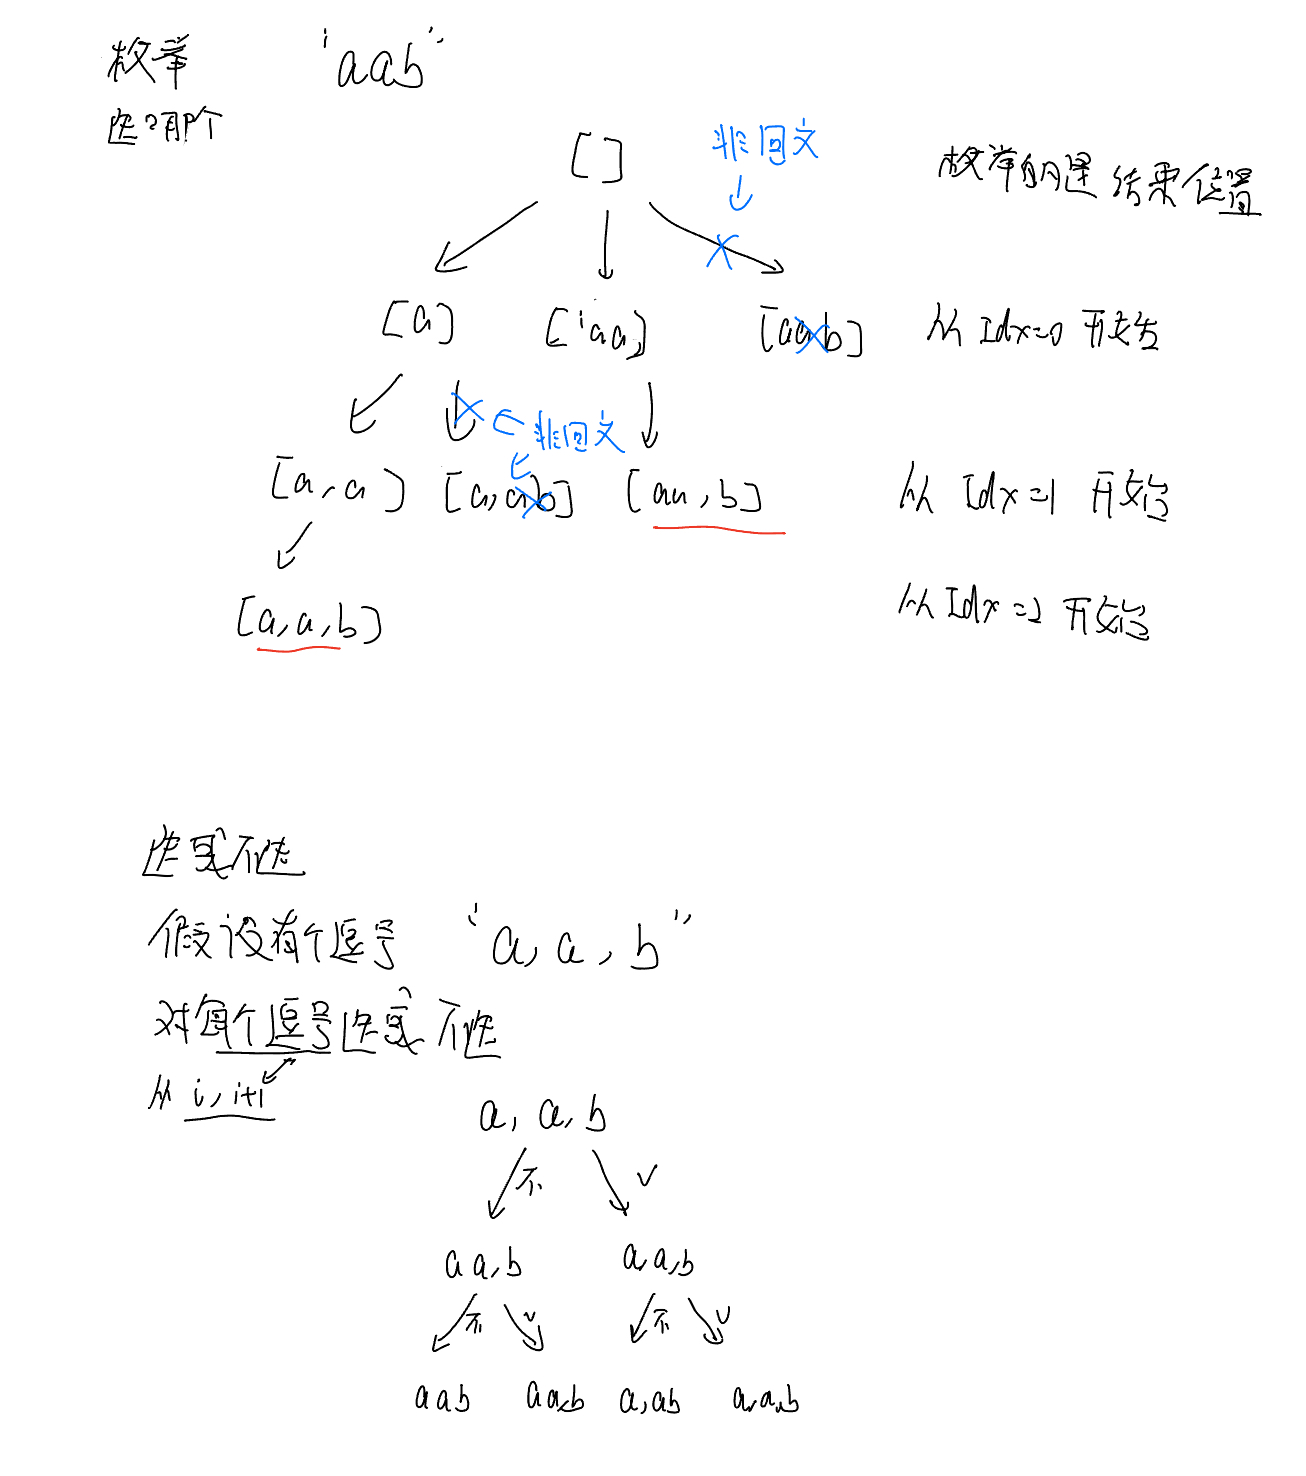 枚举 "aab"
选哪个
[] 非回文 枚举的是结束位置
[a] ['aa,] [aab] 从 Idx=0 开始
非回文
[a,a] [a,ab] [aa,b] 从 Idx=1 开始
[a,a,b] 从 Idx=2 开始
选或不选
假设有个逗号 "a,a,b"
对每个逗号选或不选
从 i,i+1
a,a,b
不 ✓
aa,b a,a,b
不 ✓ 不 ✓
aab aa,b a,ab a,a,b